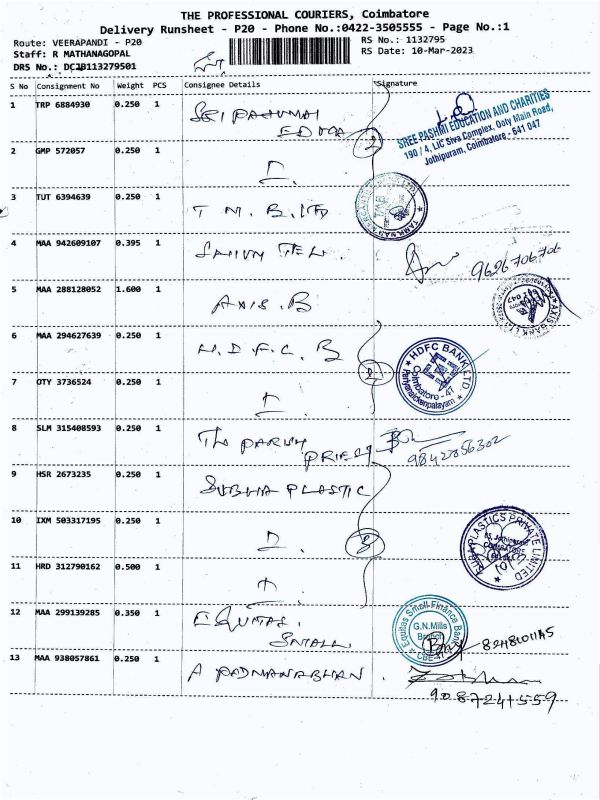 THE PROFESSIONAL COURIERS, Coimbatore
Delivery Runsheet - P20 - Phone No.:0422-3505555 - Page No.:1
Route: VEERAPANDI - P20
Staff: R MATHANAGOPAL
DRS No.: DCJB113279501
RS No.: 1132795
RS Date: 10-Mar-2023
S No Consignment No Weight PCS Consignee Details Signature
1 TRP 6884930 0.250 1
SREE PASHMI EDUCATION AND CHARITIES
190 / 4, LIC Siva Complex, Ooty Main Road,
Jothipuram, Coimbatore - 641 047
2 GMP 572057 0.250 1
3 TUT 6394639 0.250 1 T M. B. LTD
4 MAA 942609107 0.395 1 9626706706
5 MAA 288128052 1.600 1 AXIS. B
AXIS BANK LTD
6 MAA 294627639 0.250 1 H. D. F. C. B
HDFC BANK LTD
Coimbatore - 47
Periyanaickenpalayam
7 OTY 3736524 0.250 1
8 SLM 315408593 0.250 1 9842856302
9 HSR 2673235 0.250 1 SUBHA PLASTIC
10 IXM 503317195 0.250 1
PLASTICS PRIVATE LIMITED
11 HRD 312790162 0.500 1
12 MAA 299139285 0.350 1 EQUITAS
SMALL
Equitas Small Finance Bank
G.N.Mills
Branch
13 MAA 938057861 0.250 1 A PADMANABHAN
9087241559